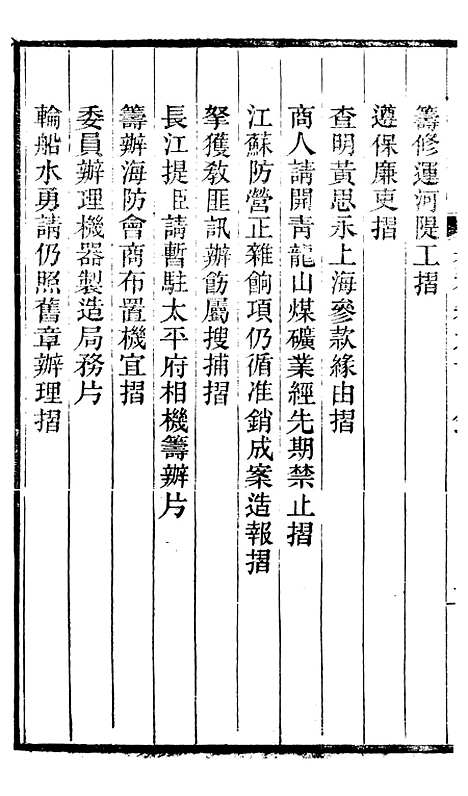 籌修運河隄工摺
遵保廉吏摺
查明黃思永上海參款緣由摺
商人請開青龍山煤礦業經先期禁止摺
江蘇防營正雜餉項仍循准銷成案造報摺
拏獲教匪訊辦飭屬搜捕摺
長江提臣請暫駐太平府相機籌辦片
籌辦海防會商布置機宜摺
委員辦理機器製造局務片
輪船水勇請仍照舊章辦理摺